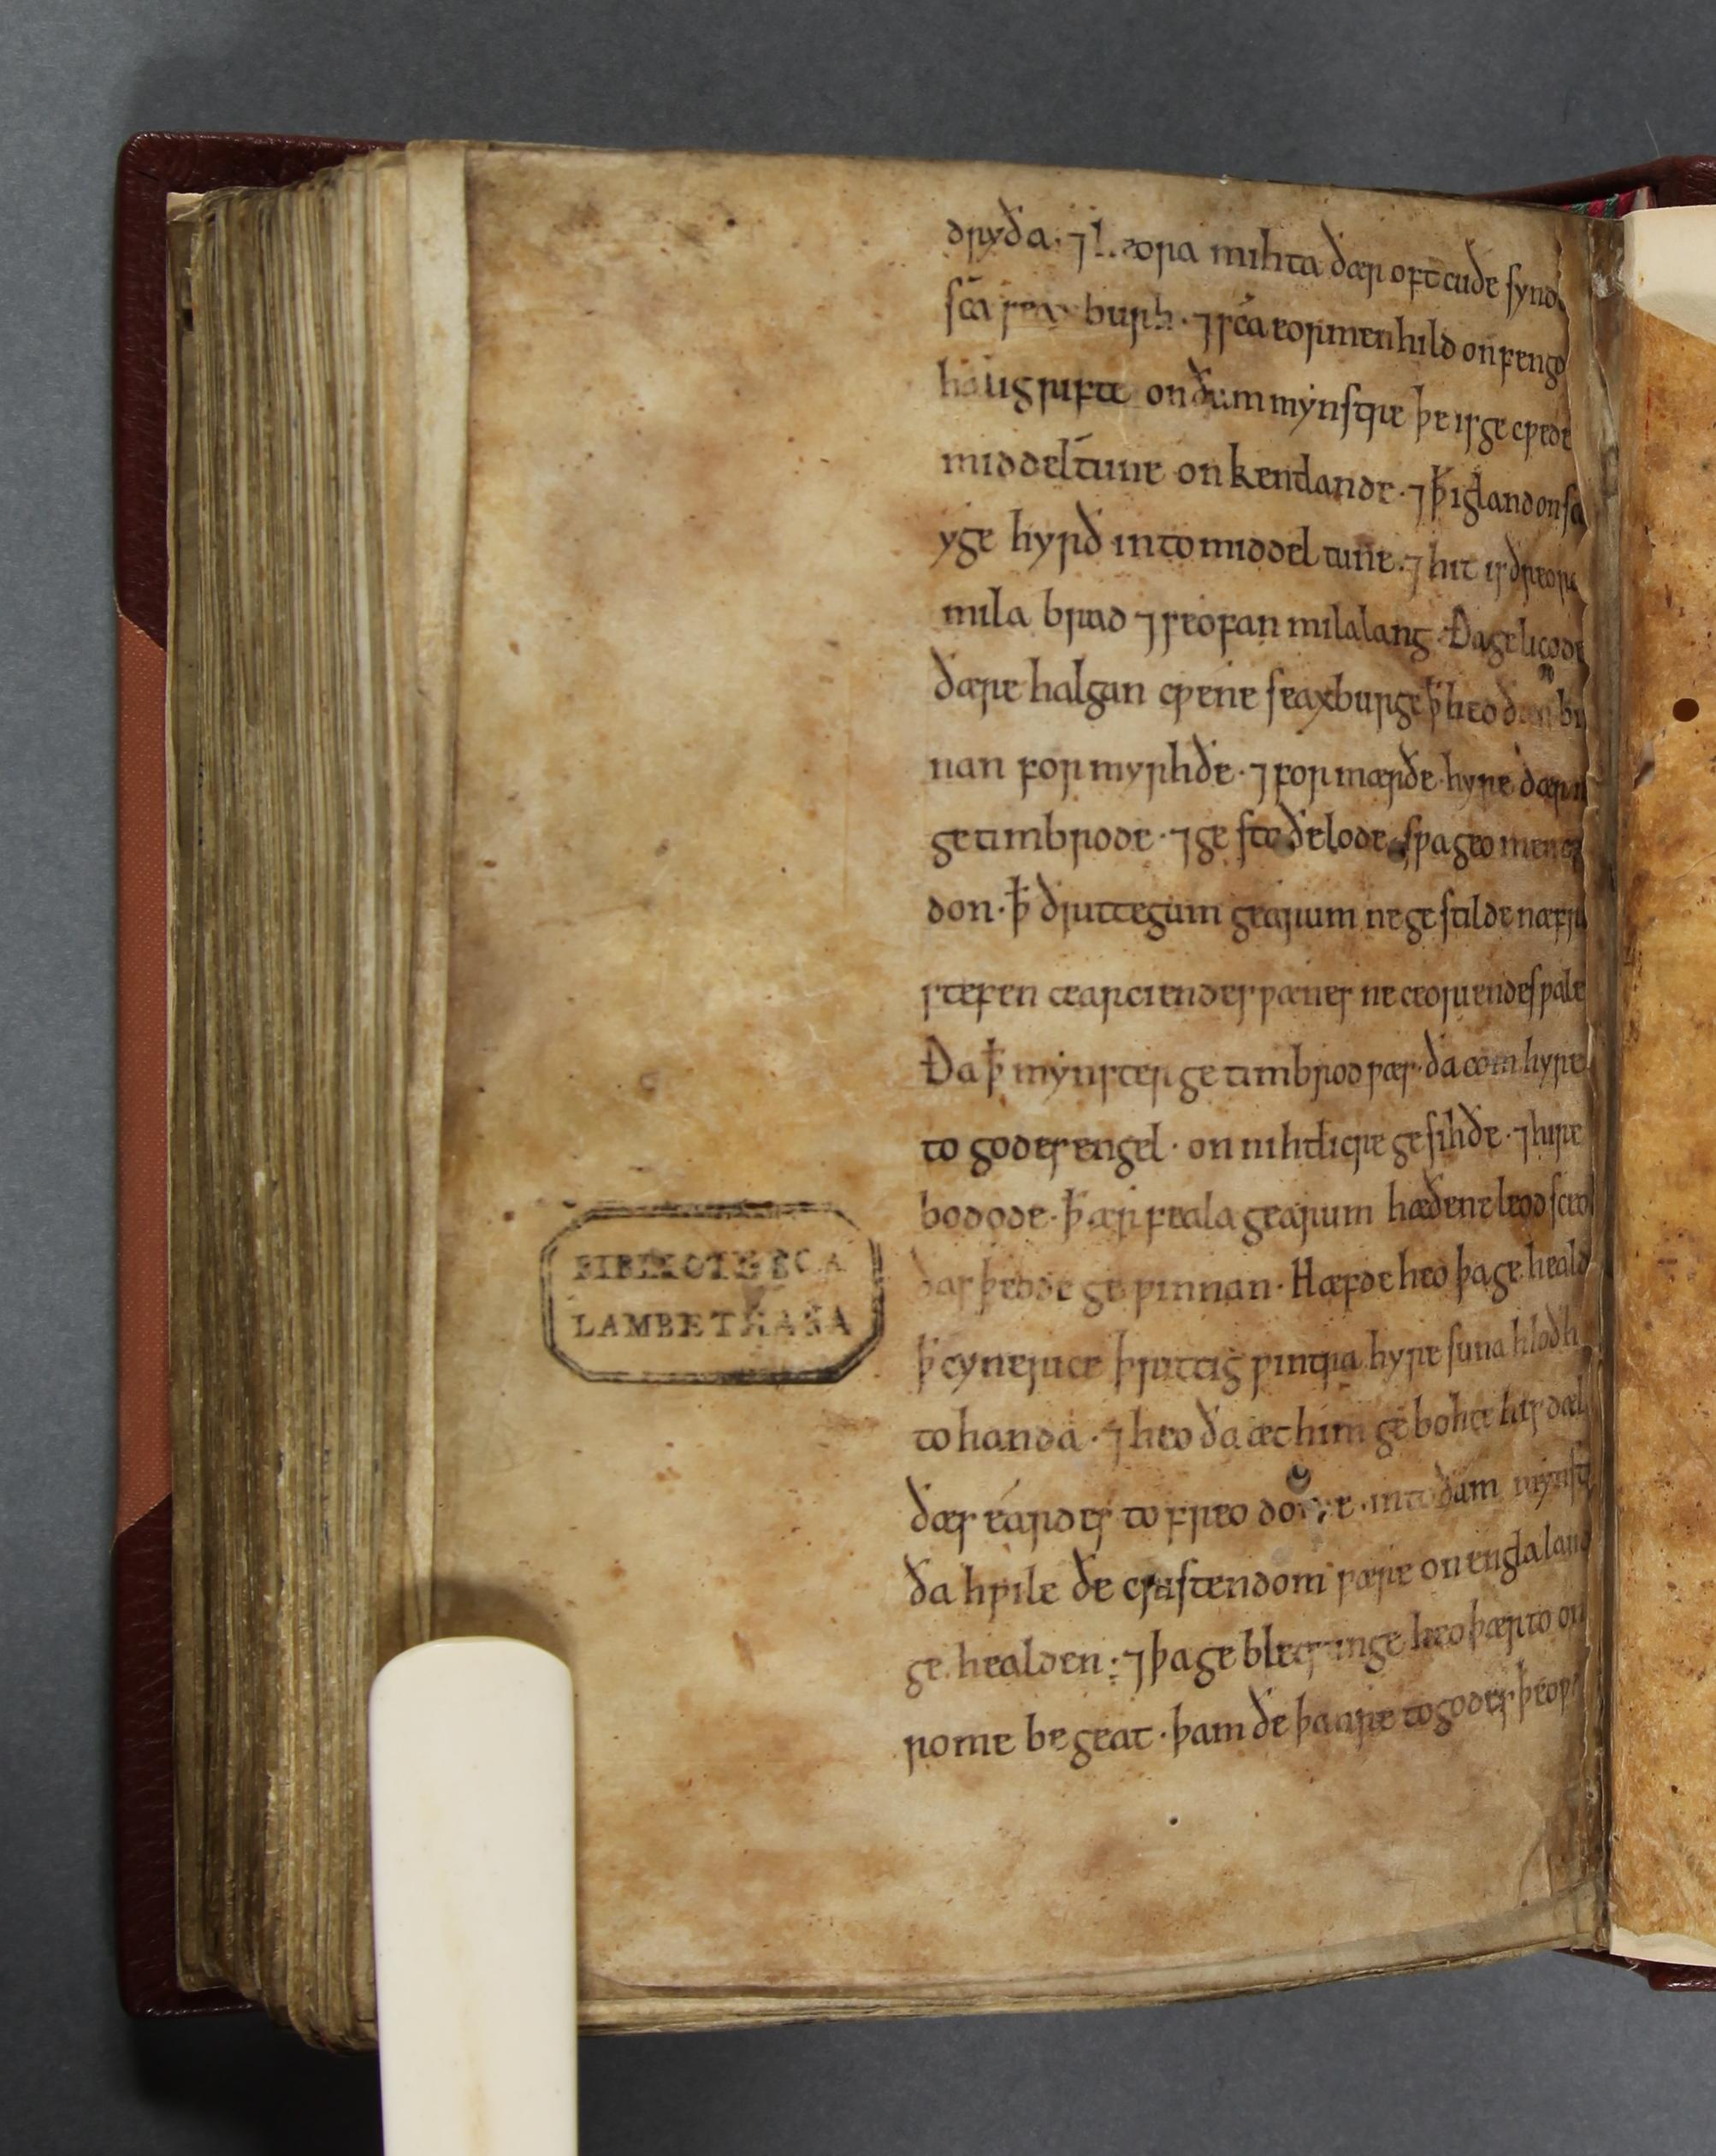 ðryða · ⁊ heora mihta ðær oft cuðe synd
sc̄a seaxburh · ⁊ sc̄a eormenhild onfeng
halig rifte on ðam mynstre þe is gecweden
middeltune on kentlande · ⁊ ꝥ igland on
yge hyrð into middeltune · ⁊ hit is ðreora
mila brad ⁊ seofan mila lang · Ða gelicode
ðære halgan cwene seaxburge ꝥ heo
nan for myrhðe · ⁊ for mærðe hyre ðær
getimbrode · ⁊ ge staðelode swa geo men
don · ꝥ ðrittegum gearum ne gestilde næfre
stefen cearciendes wænes ne ceoriendes wales
Ða ꝥ mynster getimbrod wæs · ða com hyre
to godes engel · on nihtlicre gesihðe · ⁊ hire
bodode · ꝥ ær feala gearum hæðene leod sceol
ðas þeode gewinnan · Hæfde heo þa geheald
ꝥ cynerice þrittig wintra hyre suna hloðh
to handa · ⁊ heo ða æt him gebohte his dæl
ðæs eardes to freo dome · into ðam mynst
ða hwile ðe cristendom wære on englaland
ge healden : ⁊ þa geblecsunge heo þærto on
rome begeat · þam ðe þanne to godes þeow
BIBLIOTHECA
LAMBETHANA